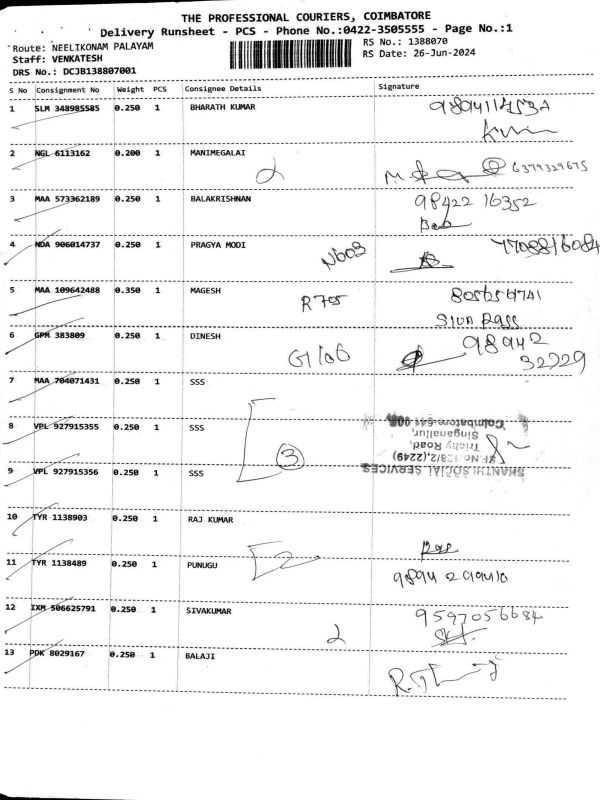 THE PROFESSIONAL COURIERS, COIMBATORE
Delivery Runsheet - PCS - Phone No.:0422-3505555 - Page No.:1
Route: NEELIKONAM PALAYAM
RS No.: 1388070
Staff: VENKATESH
RS Date: 26-Jun-2024
DRS No.: DCJB138807001
S No Consignment No Weight PCS Consignee Details Signature
1 SLM 348985585 0.250 1 BHARATH KUMAR
2 NGL 6113162 0.200 1 MANIMEGALAI 6379329675
3 MAA 573362189 0.250 1 BALAKRISHNAN 98422 16352
4 NDA 906014737 0.250 1 PRAGYA MODI N603 7708816084
5 MAA 109642488 0.350 1 MAGESH R705
6 GPM 383809 0.250 1 DINESH G106 98942
32229
7 MAA 704071431 0.250 1 SSS
8 VPL 927915355 0.250 1 SSS 3
9 VPL 927915356 0.250 1 SSS
SHANTHI SOCIAL SERVICES
SF.No.128/2,(2249)
Trichy Road,
Singanallur,
Coimbatore-641 005.
10 TYR 1138903 0.250 1 RAJ KUMAR
11 TYR 1138489 0.250 1 PUNUGU 2
12 IXM 506625791 0.250 1 SIVAKUMAR 9597056684
13 PDK 8029167 0.250 1 BALAJI